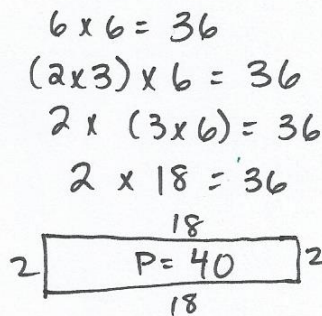 6 x 6 = 36
(2x3) x 6 = 36
2 x (3x6) = 36
2 x 18 = 36
18
2 P = 40 2
18